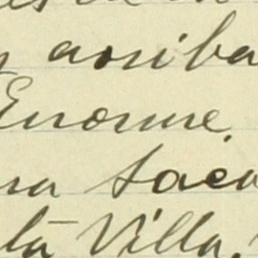 arriba
Enorme.
na Saca
la Villa,